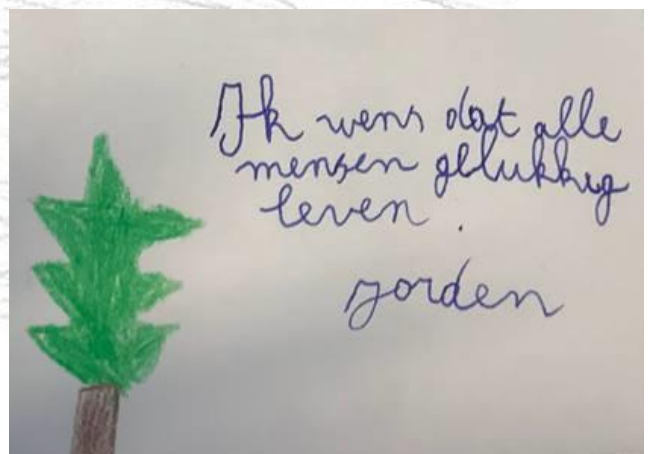 Ik wens dat alle
mensen gelukkig
leven.
Jorden